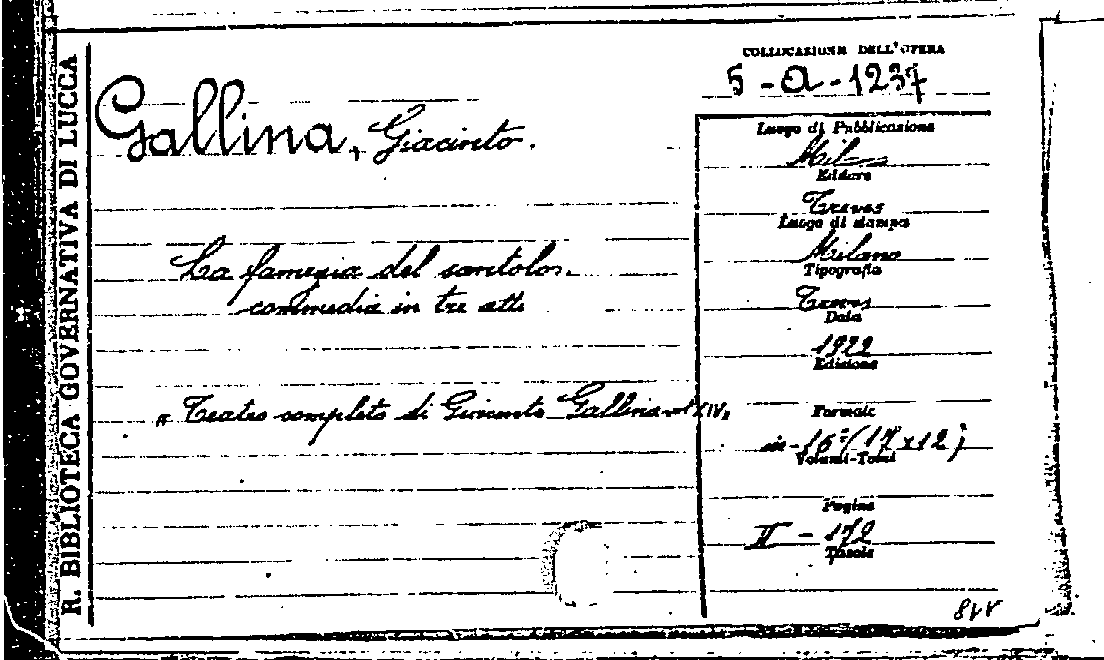 R. BIBLIOTECA GOVERNATIVA DI LUCCA
COLLOCAZIONE DELL'OPERA
5-a-1237
Gallina, Giacinto.
La famegia del santolo.
commedia in tre atti
"Teatro completo di Giacinto Gallina vol XIV"
Luogo di Pubblicazione
Milano
Editore
Treves
Luogo di stampa
Milano
Tipografia
Treves
Data
1922
Edizione
Formato
in-16° (17x12)
Volumi-Tomi
Pagine
II - 172
Tavole